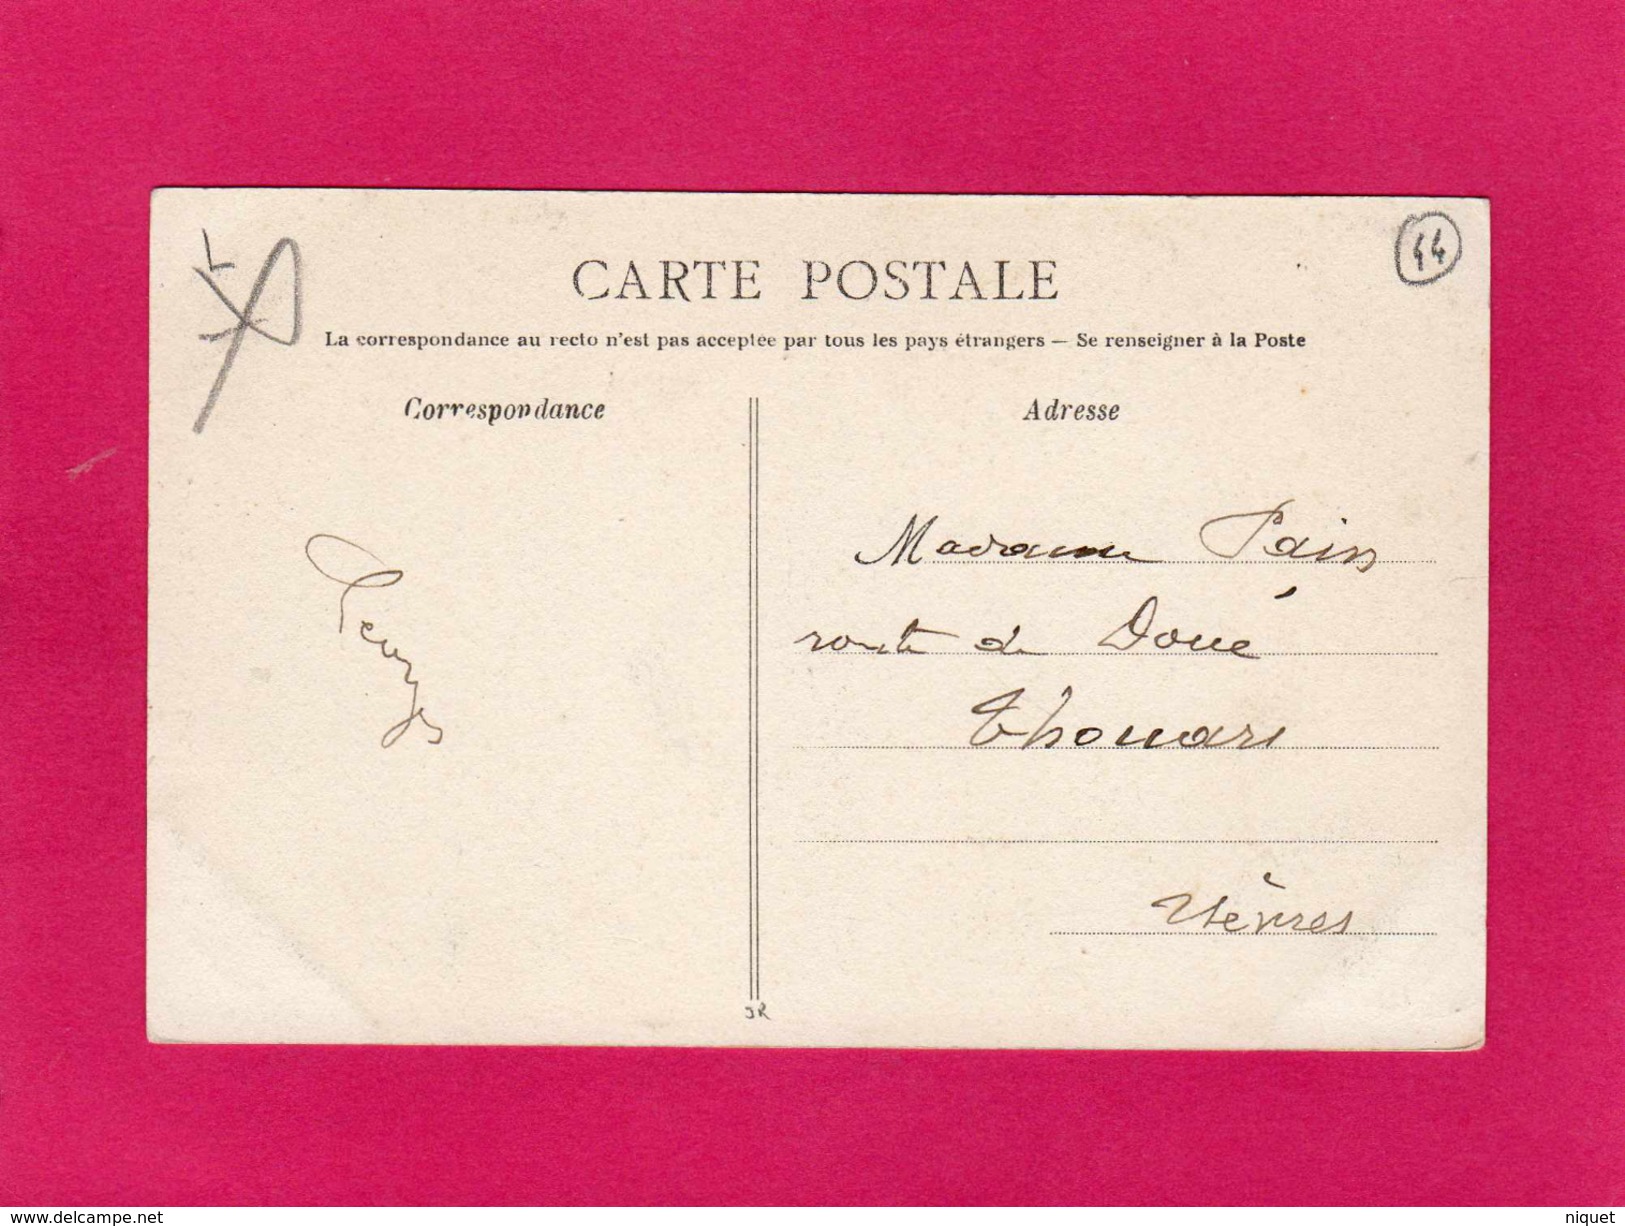 44
CARTE POSTALE
La correspondance au recto n'est pas acceptée par tous les pays étrangers — Se renseigner à la Poste
Correspondance
Adresse
Madame Pain
route de Doué
Thouars
Sèvres
Georges
JR
www.delcampe.net
niquet